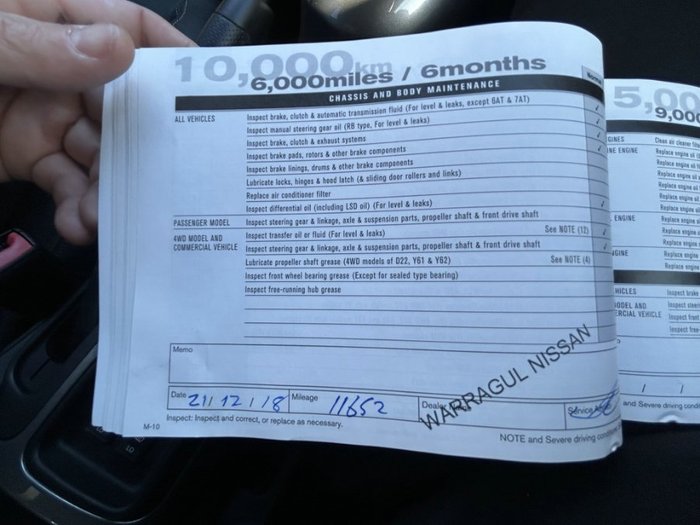 10,000km
6,000miles / 6months
CHASSIS AND BODY MAINTENANCE
ALL VEHICLES
Inspect brake, clutch & automatic transmission fluid (For level & leaks, except 6AT & 7AT)
Inspect manual steering gear oil (RB type, For level & leaks)
Inspect brake, clutch & exhaust systems
Inspect brake pads, rotors & other brake components
Inspect brake linings, drums & other brake components
Lubricate locks, hinges & hood latch (& sliding door rollers and links)
Replace air conditioner filter
Inspect differential oil (including LSD oil) (For level & leaks)
PASSENGER MODEL Inspect steering gear & linkage, axle & suspension parts, propeller shaft & front drive shaft
4WD MODEL AND COMMERCIAL VEHICLE
Inspect transfer oil or fluid (For level & leaks) See NOTE (12)
Inspect steering gear & linkage, axle & suspension parts, propeller shaft & front drive shaft
Lubricate propeller shaft grease (4WD models of D22, Y61 & Y62) See NOTE (4)
Inspect front wheel bearing grease (Except for sealed type bearing)
Inspect free-running hub grease
Memo
WARRAGUL NISSAN
Date 21/12/18 Mileage 11652
Inspect: Inspect and correct, or replace as necessary.
M-10
NOTE and Severe driving
9,000
Clean air cleaner
Replace engine oil
Replace engine oil
Replace engine oil
Replace engine oil
Replace engine oil
Replace engine
Replace engine
Replace engine
Replace engine
Inspect brake
Inspect
Inspect front
Inspect
and Severe driving